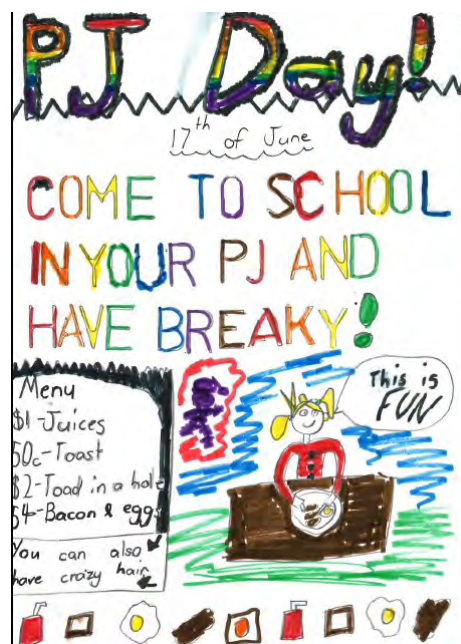 PJ Day!
17th of June
COME TO SCHOOL
IN YOUR PJ AND
HAVE BREAKY!
Menu
$1-Juices
50c-Toast
$2-Toad in a hole
$4-Bacon & eggs
You can also
have crazy hair
This is
FUN